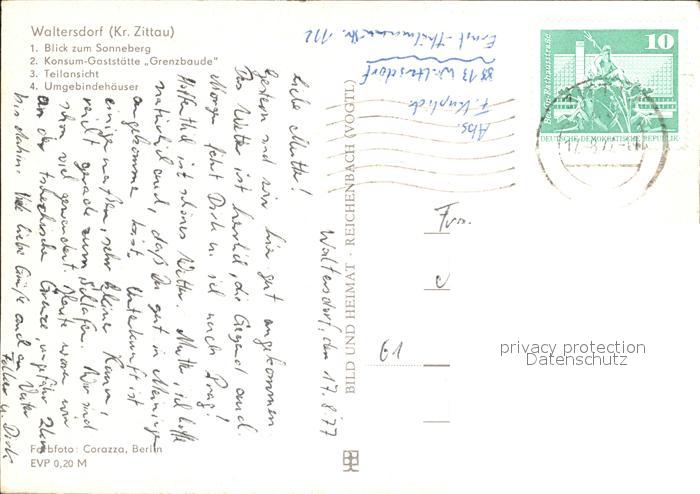 Waltersdorf (Kr. Zittau)
1. Blick zum Sonneberg
2. Konsum-Gaststätte „Grenzbaude"
3. Teilansicht
4. Umgebindehäuser
Waltersdorf, den 17.8.77
Liebe Mutti!
Gestern sind wir hier gut angekommen.
Das Wetter ist herrlich, die Gegend auch.
Morgen fährt Dirk u. ich nach Prag!
Hoffentlich ist schönes Wetter. Mutti, ich hoffe
natürlich auch, daß Du gut in Meiningen
angekommen bist. Unterkunft ist
einigermaßen, sehr kleine Kammer,
reicht gerade zum Schlafen. Wir sind
schon viel gewandert. Heute waren wir
an der tschechische Grenze, ungefähr 2 km
bis dahin. Viele liebe Grüße auch an Vati
u. Dirk
Farbfoto: Corazza, Berlin
EVP 0,20 M
BILD UND HEIMAT · REICHENBACH (VOGTL)
Abs.
8813 Waltersdorf
Ernst-Thälmann-Str. 112
Berlin, Rathausstraße
10
DEUTSCHE DEMOKRATISCHE REPUBLIK
Frau
61
privacy protection
Datenschutz